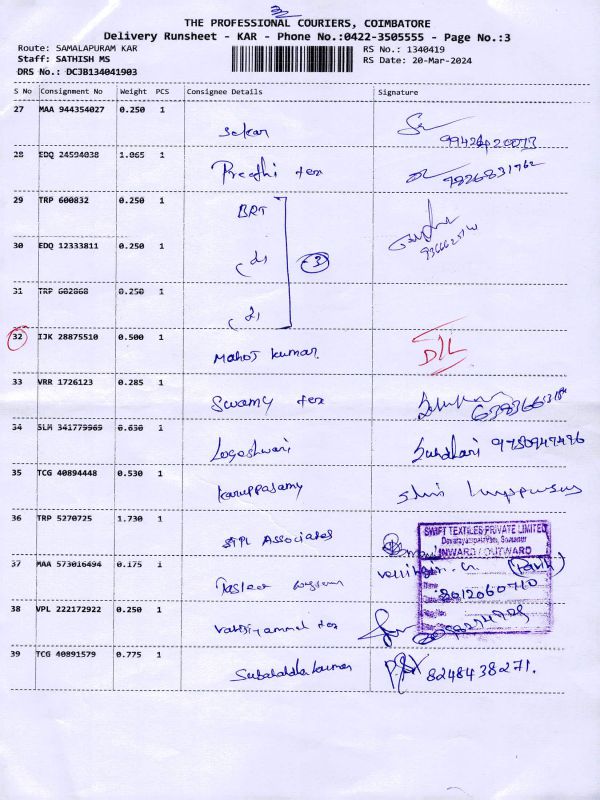 THE PROFESSIONAL COURIERS, COIMBATORE
Delivery Runsheet - KAR - Phone No.:0422-3505555 - Page No.:3
Route: SAMALAPURAM KAR
RS No.: 1340419
Staff: SATHISH MS
RS Date: 20-Mar-2024
DRS No.: DCJB134041903
S No Consignment No Weight PCS Consignee Details Signature
27 MAA 944354027 0.250 1
Sekar
28 EDQ 24594038 1.065 1
Preethi tex 9826831762
29 TRP 600832 0.250 1
BRT
30 EDQ 12333811 0.250 1
3
31 TRP 602868 0.250 1
32 IJK 28875510 0.500 1
Manoj kumar D/L
33 VRR 1726123 0.285 1
Swamy tex
34 SLM 341779969 0.630 1
Logeshwari 9750947496
35 TCG 40894448 0.530 1
Karuppasamy
36 TRP 5270725 1.730 1
STPL Associates
SWIFT TEXTILES PRIVATE LIMITED
INWARD / OUTWARD
37 MAA 573016494 0.175 1
8012060710
38 VPL 222172922 0.250 1
39 TCG 40891579 0.775 1
8248438271.